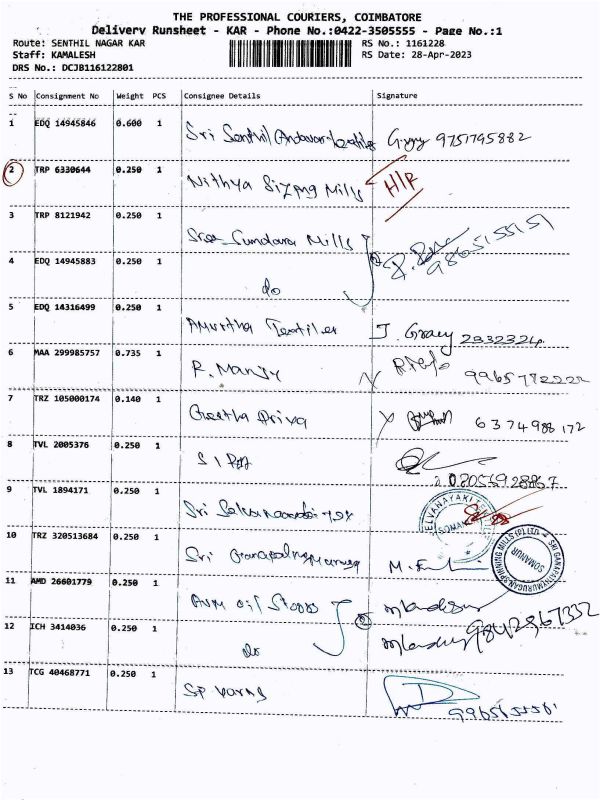 THE PROFESSIONAL COURIERS, COIMBATORE
Delivery Runsheet - KAR - Phone No.:0422-3505555 - Page No.:1
Route: SENTHIL NAGAR KAR RS No.: 1161228
Staff: KAMALESH RS Date: 28-Apr-2023
DRS No.: DCJB116122801
S No Consignment No Weight PCS Consignee Details Signature
1 EDQ 14945846 0.600 1 Sri Senthil 9751795882
2 TRP 6330644 0.250 1 Nithya Sizing Mills H/R
3 TRP 8121942 0.250 1 Sree Sundara Mills
4 EDQ 14945883 0.250 1 do
5 EDQ 14316499 0.250 1 Amirtha Textiles J. Gracy 2232324
6 MAA 299985757 0.735 1 R. Manju 9965782222
7 TRZ 105000174 0.140 1 Geetha Priya 6374988172
8 TVL 2005376 0.250 1
9 TVL 1894171 0.250 1 Sri
10 TRZ 320513684 0.250 1 Sri
SOMANUR
11 AMD 26601779 0.250 1 Avm oil Stores
12 ICH 3414036 0.250 1 do 9842967332
13 TCG 40468771 0.250 1 SP Yarns